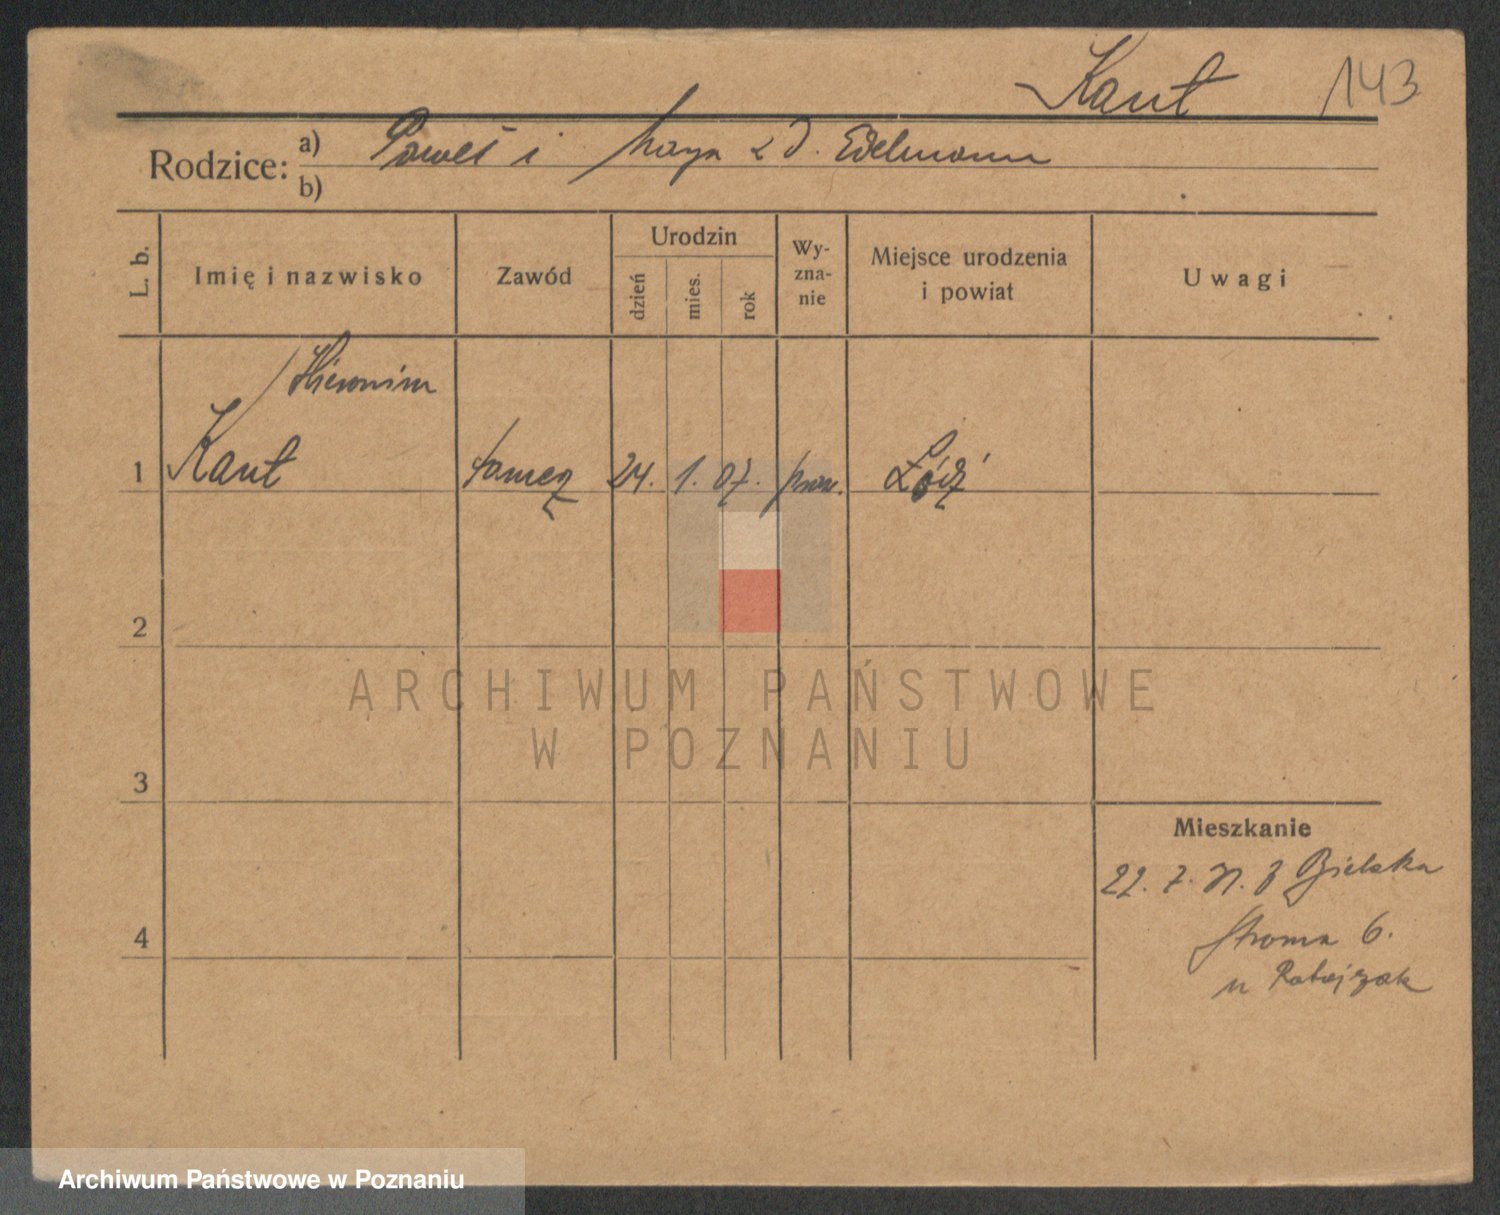 Kant 143
Rodzice: a) Paweł i Marya z d. Edelmann
b)
L. b.
Imię i nazwisko
Zawód
Urodzin
dzień
mies.
rok
Wy-
zna-
nie
Miejsce urodzenia
i powiat
Uwagi
Hieronim
1 Kant 24. 1. 07. Łódź
2
3
4
Mieszkanie
22. 7. 31. z Bielska
Stroma 6.
u Ratajczak
ARCHIWUM PAŃSTWOWE
W POZNANIU
Archiwum Państwowe w Poznaniu